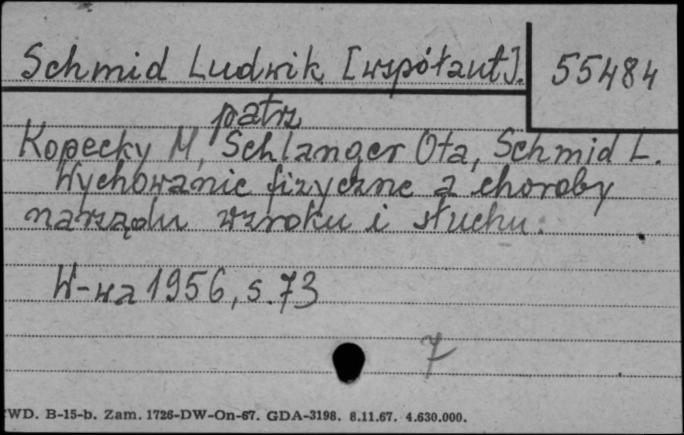 Schmid Ludwik [współaut]. 55484
patrz
Kopecky M, Schlanger Ota, Schmid L.
Wychowanie fizyczne a choroby
narządu wzroku i słuchu.
W-wa 1956, s. 73
7
WD. B-15-b. Zam. 1726-DW-On-67. GDA-3198. 8.11.67. 4.630.000.